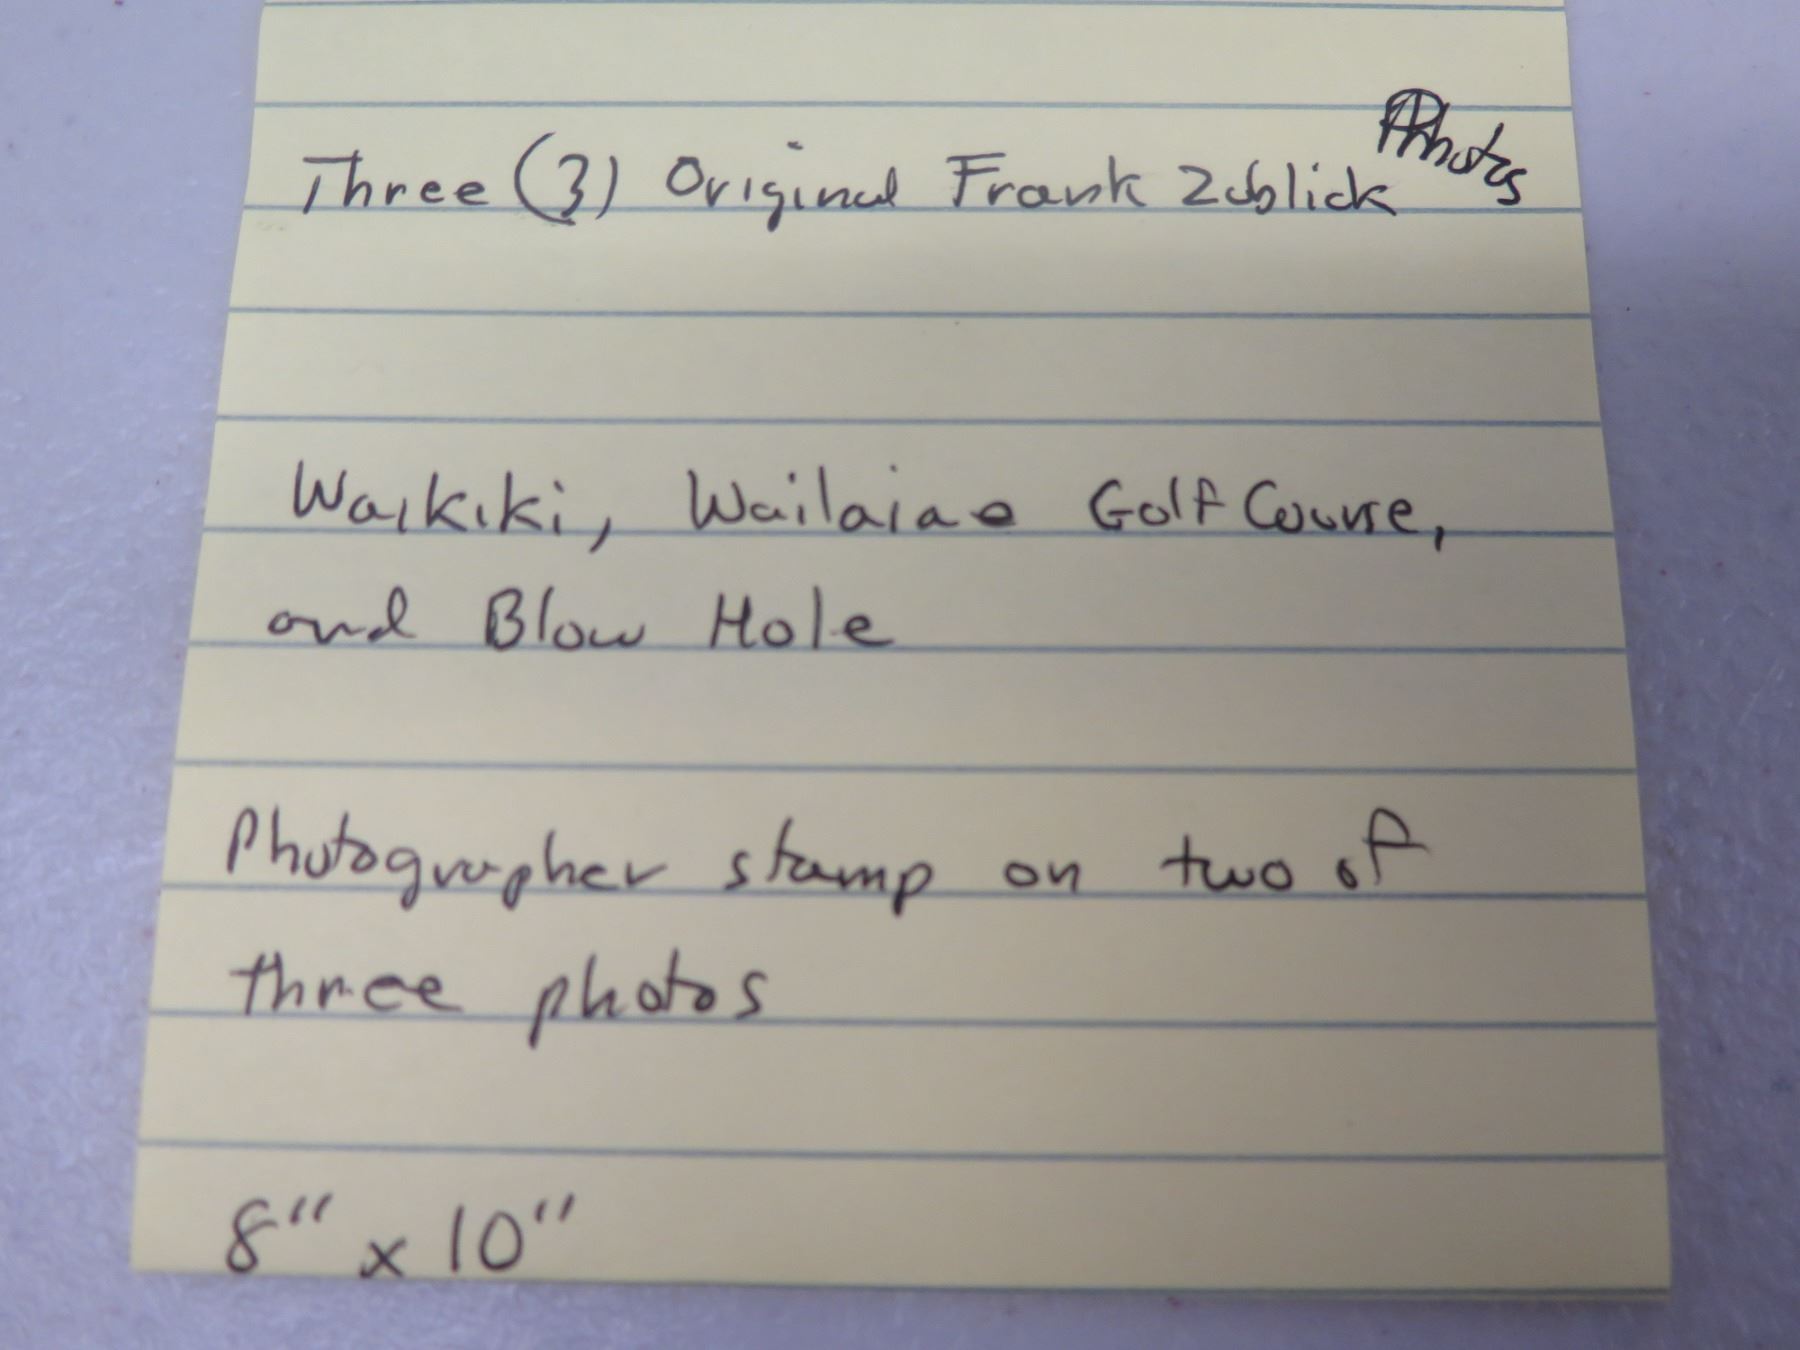 Three (3) Original Frank Zablick Photos
Waikiki, Wailaiae Golf Course,
and Blow Hole
Photographer stamp on two of
three photos
8" x 10"